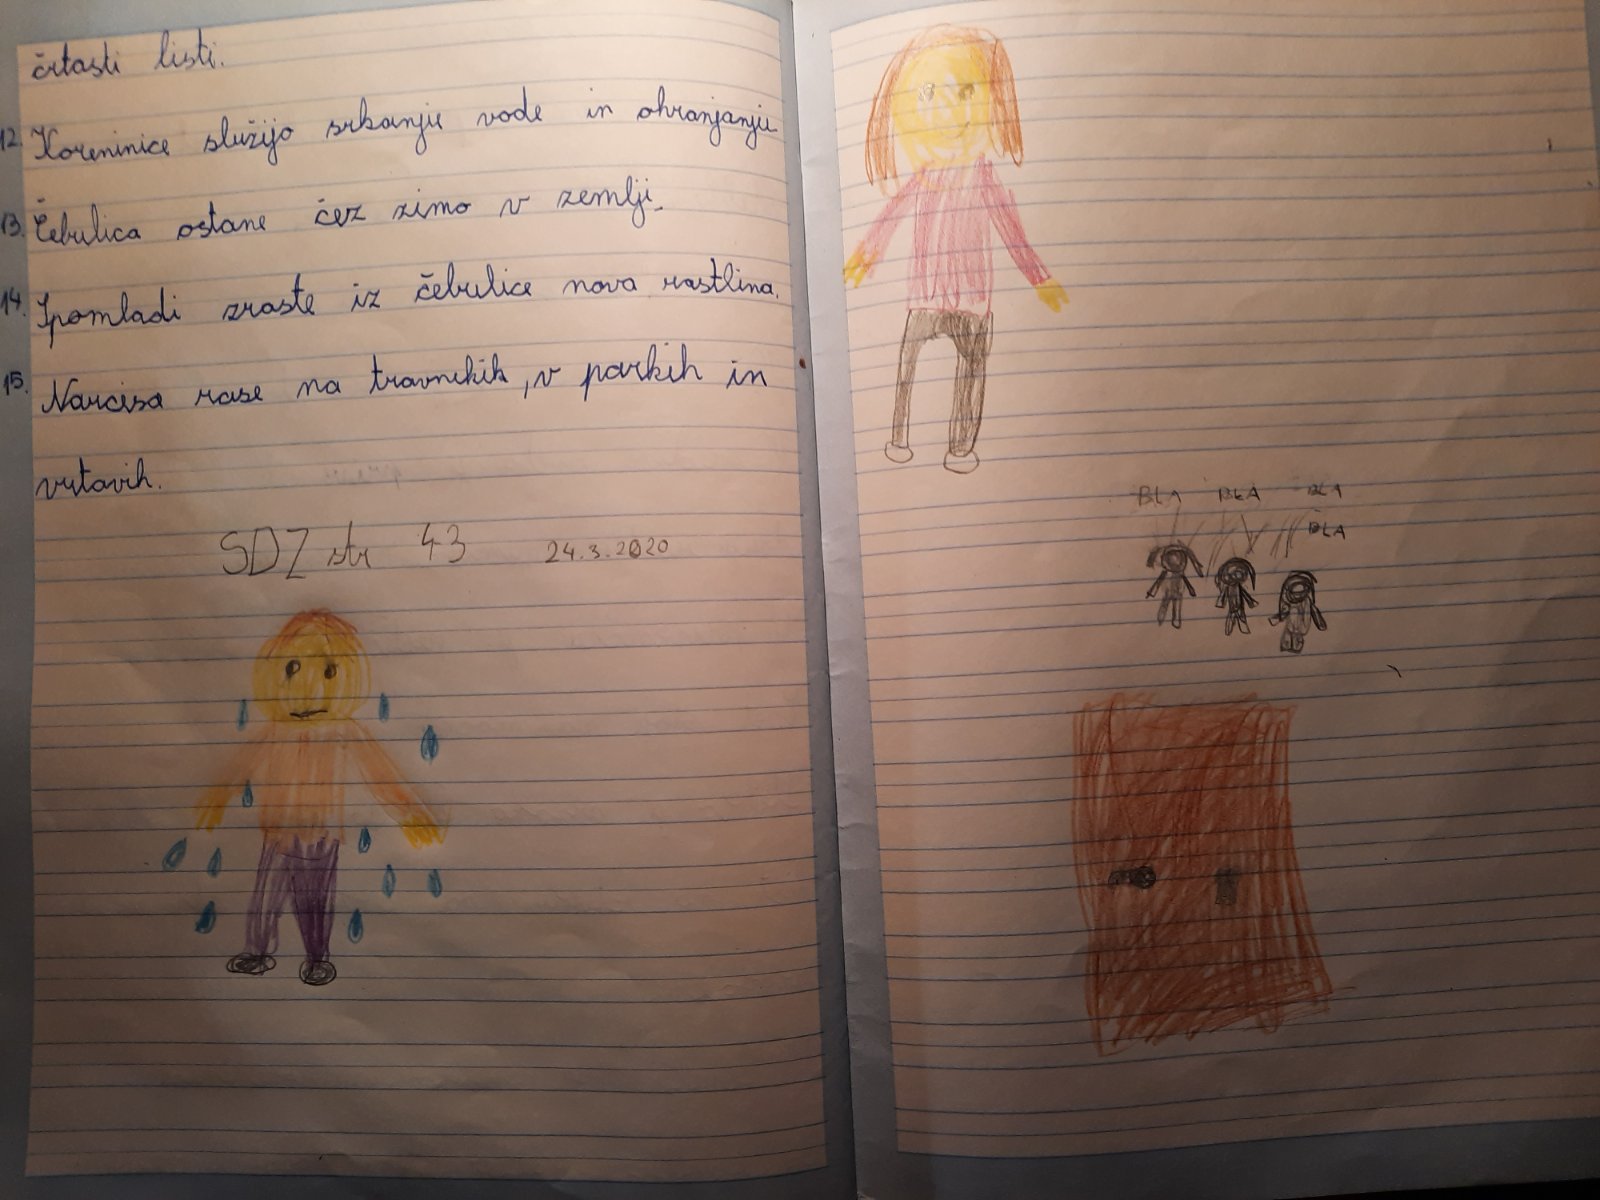 črtasti listi.
12. Koreninice služijo srkanju vode in ohranjanju
13. Čebulica ostane čez zimo v zemlji.
14. Spomladi zraste iz čebulice nova rastlina.
15. Narcisa rase na travnikih, v parkih in
vrtovih.
SDZ str 43 24.3.2020
BLA BLA BLA
BLA